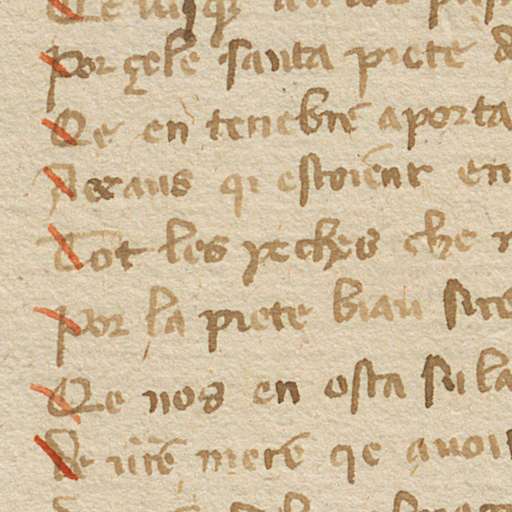 Por çele santa piete d
Qe en tenebre aporta
A ceaus qi estoient en
Tot les peches che n
Por la piete biau sire
Qe nos en osta su la
De nr̄e mere qe avoi